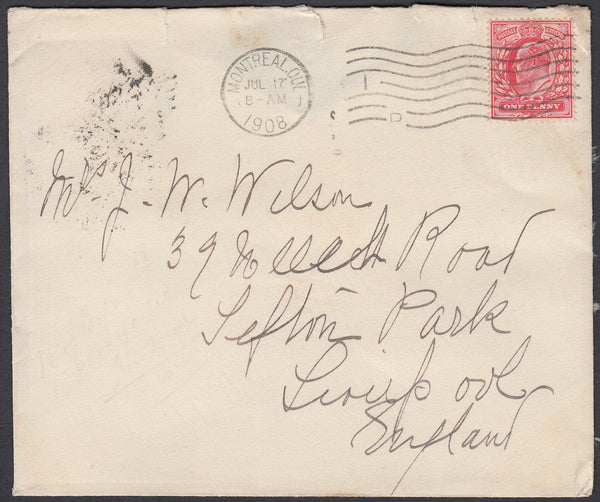 MONTREAL. QUE.
JUL 17
8-AM
1908
POSTAGE REVENUE
ONE PENNY
Mrs J. W. Wilson
39 Road
Sefton Park
Liverpool
England